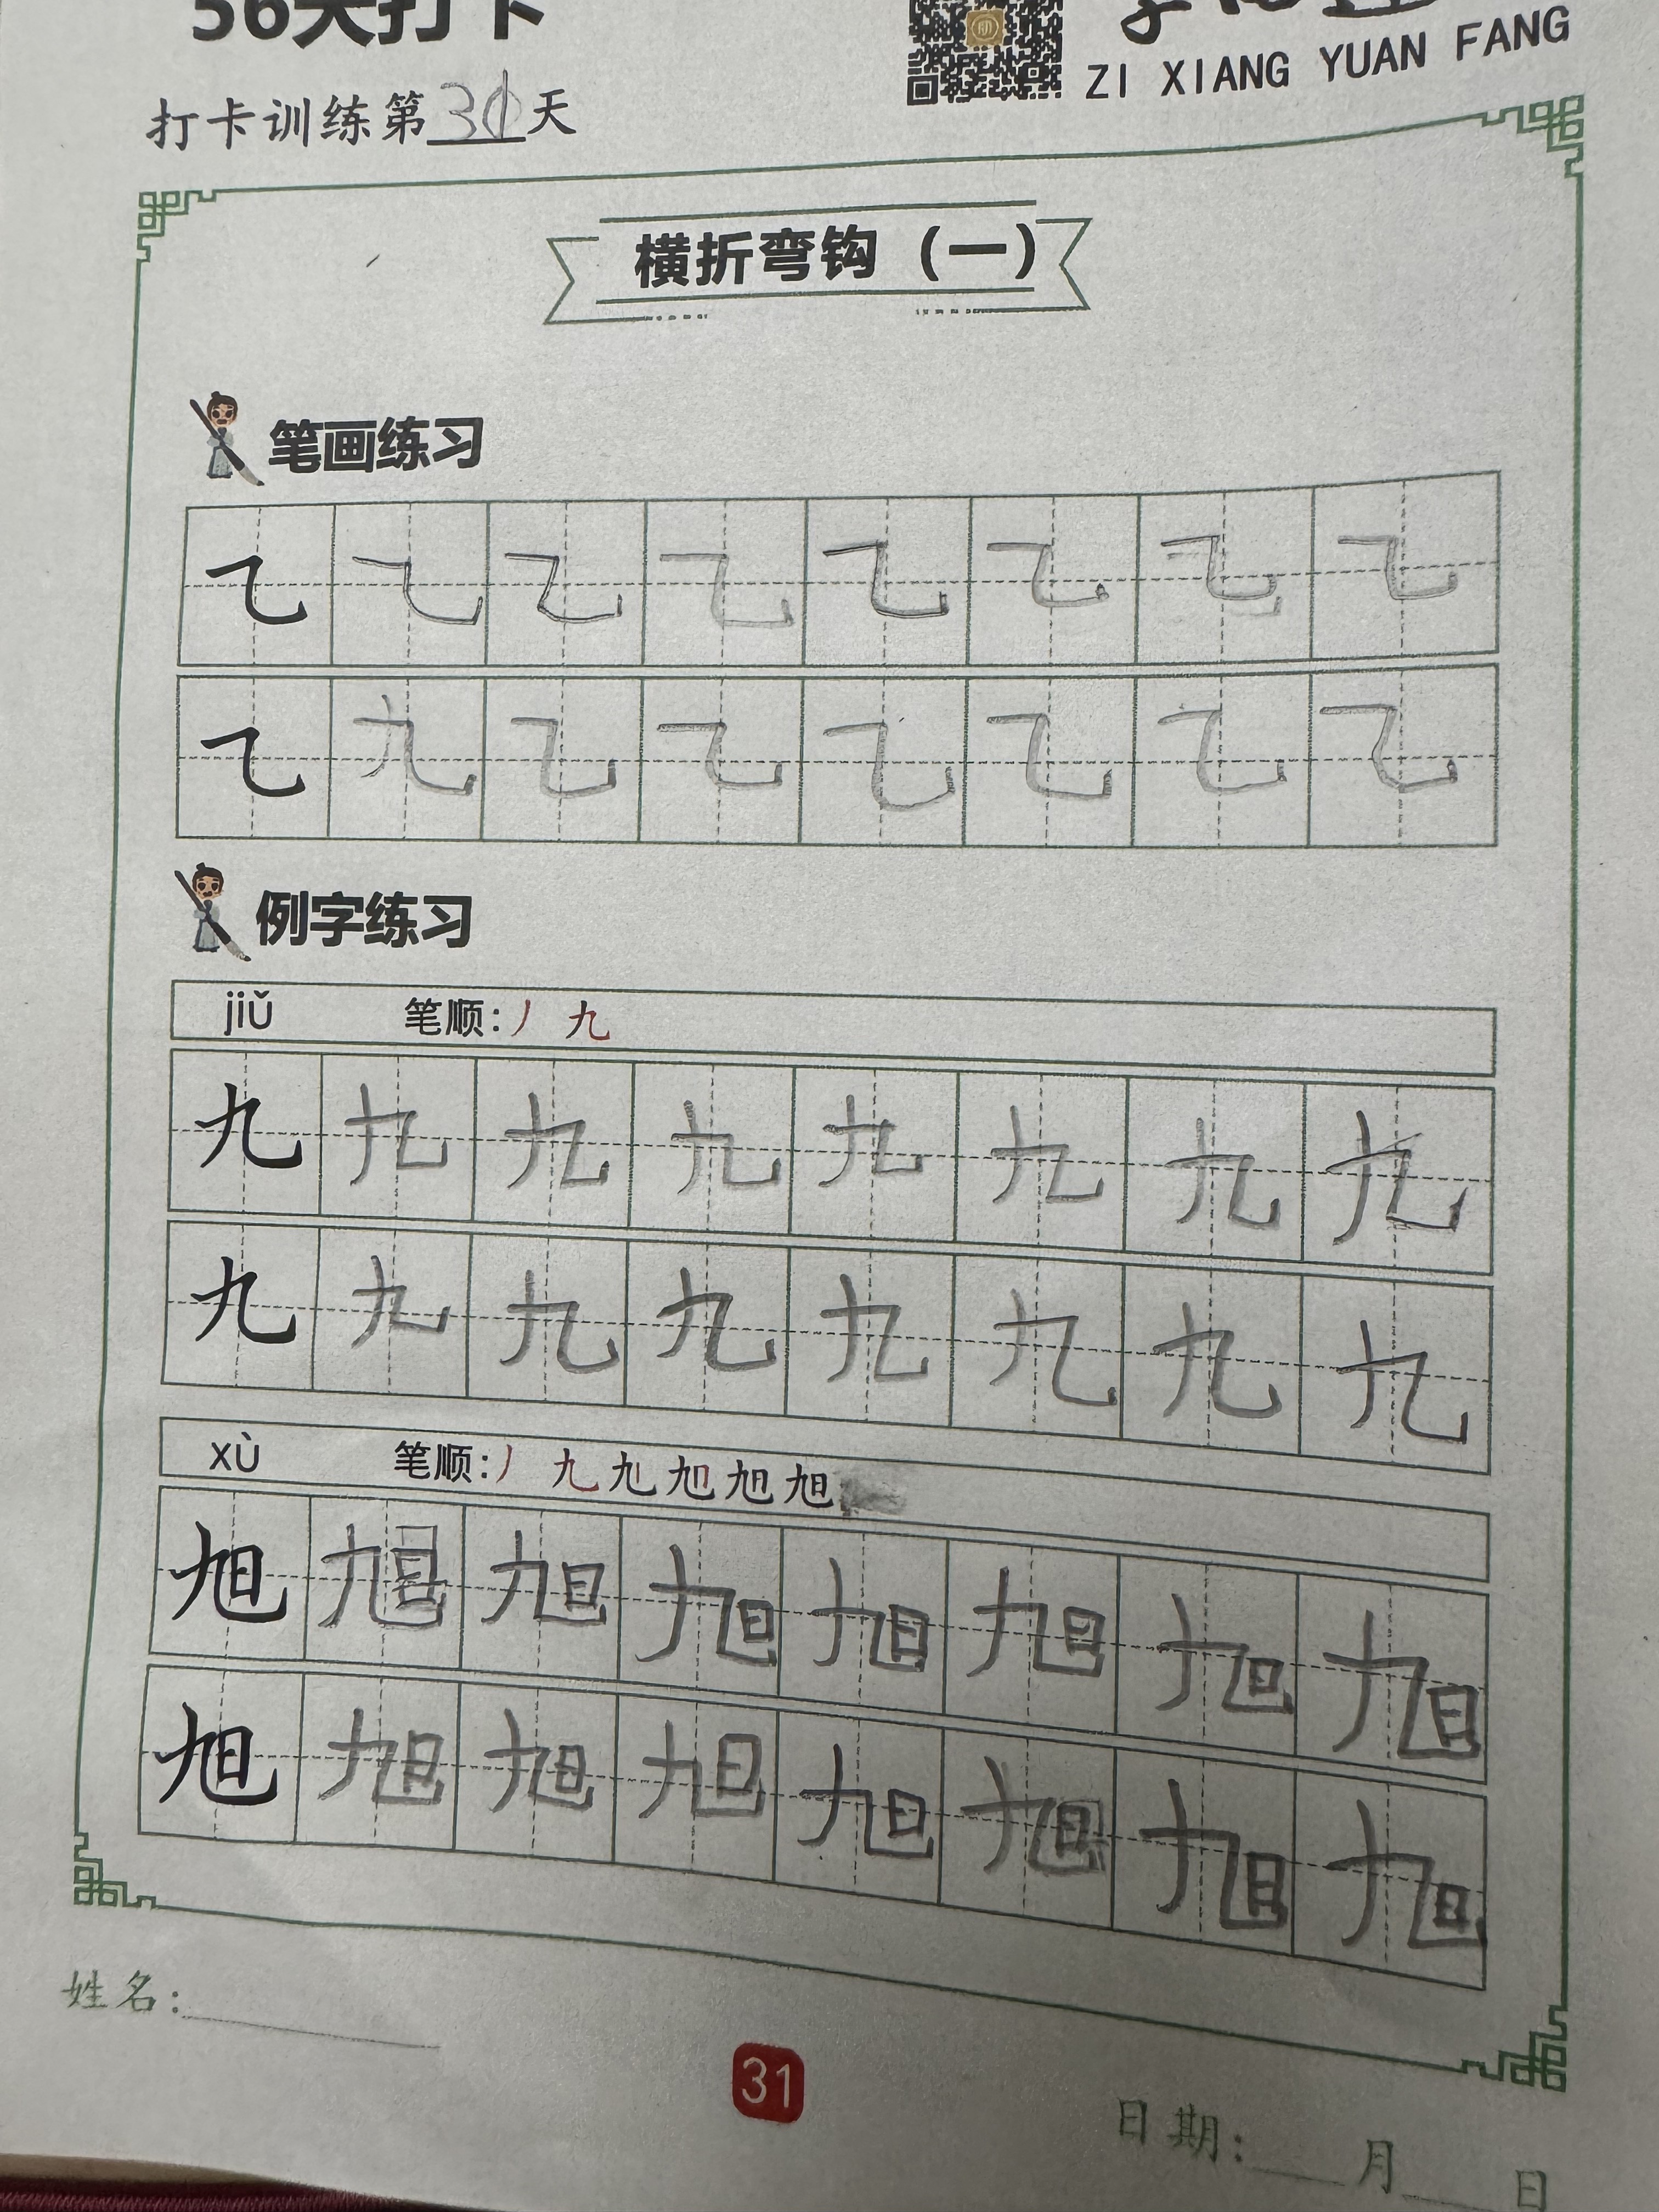 56天打卡
ZI XIANG YUAN FANG
打卡训练第31天
横折弯钩（一）
笔画练习
九
例字练习
jiǔ 笔顺：丿 九
九 九 九 九 九 九 九 九
九 九 九 九 九 九 九 九
xù 笔顺：丿 九 旭 旭
旭 旭 旭 旭 旭 旭 旭 旭
旭 旭 旭 旭 旭 旭 旭 旭
姓名：
31
日期： 月 日